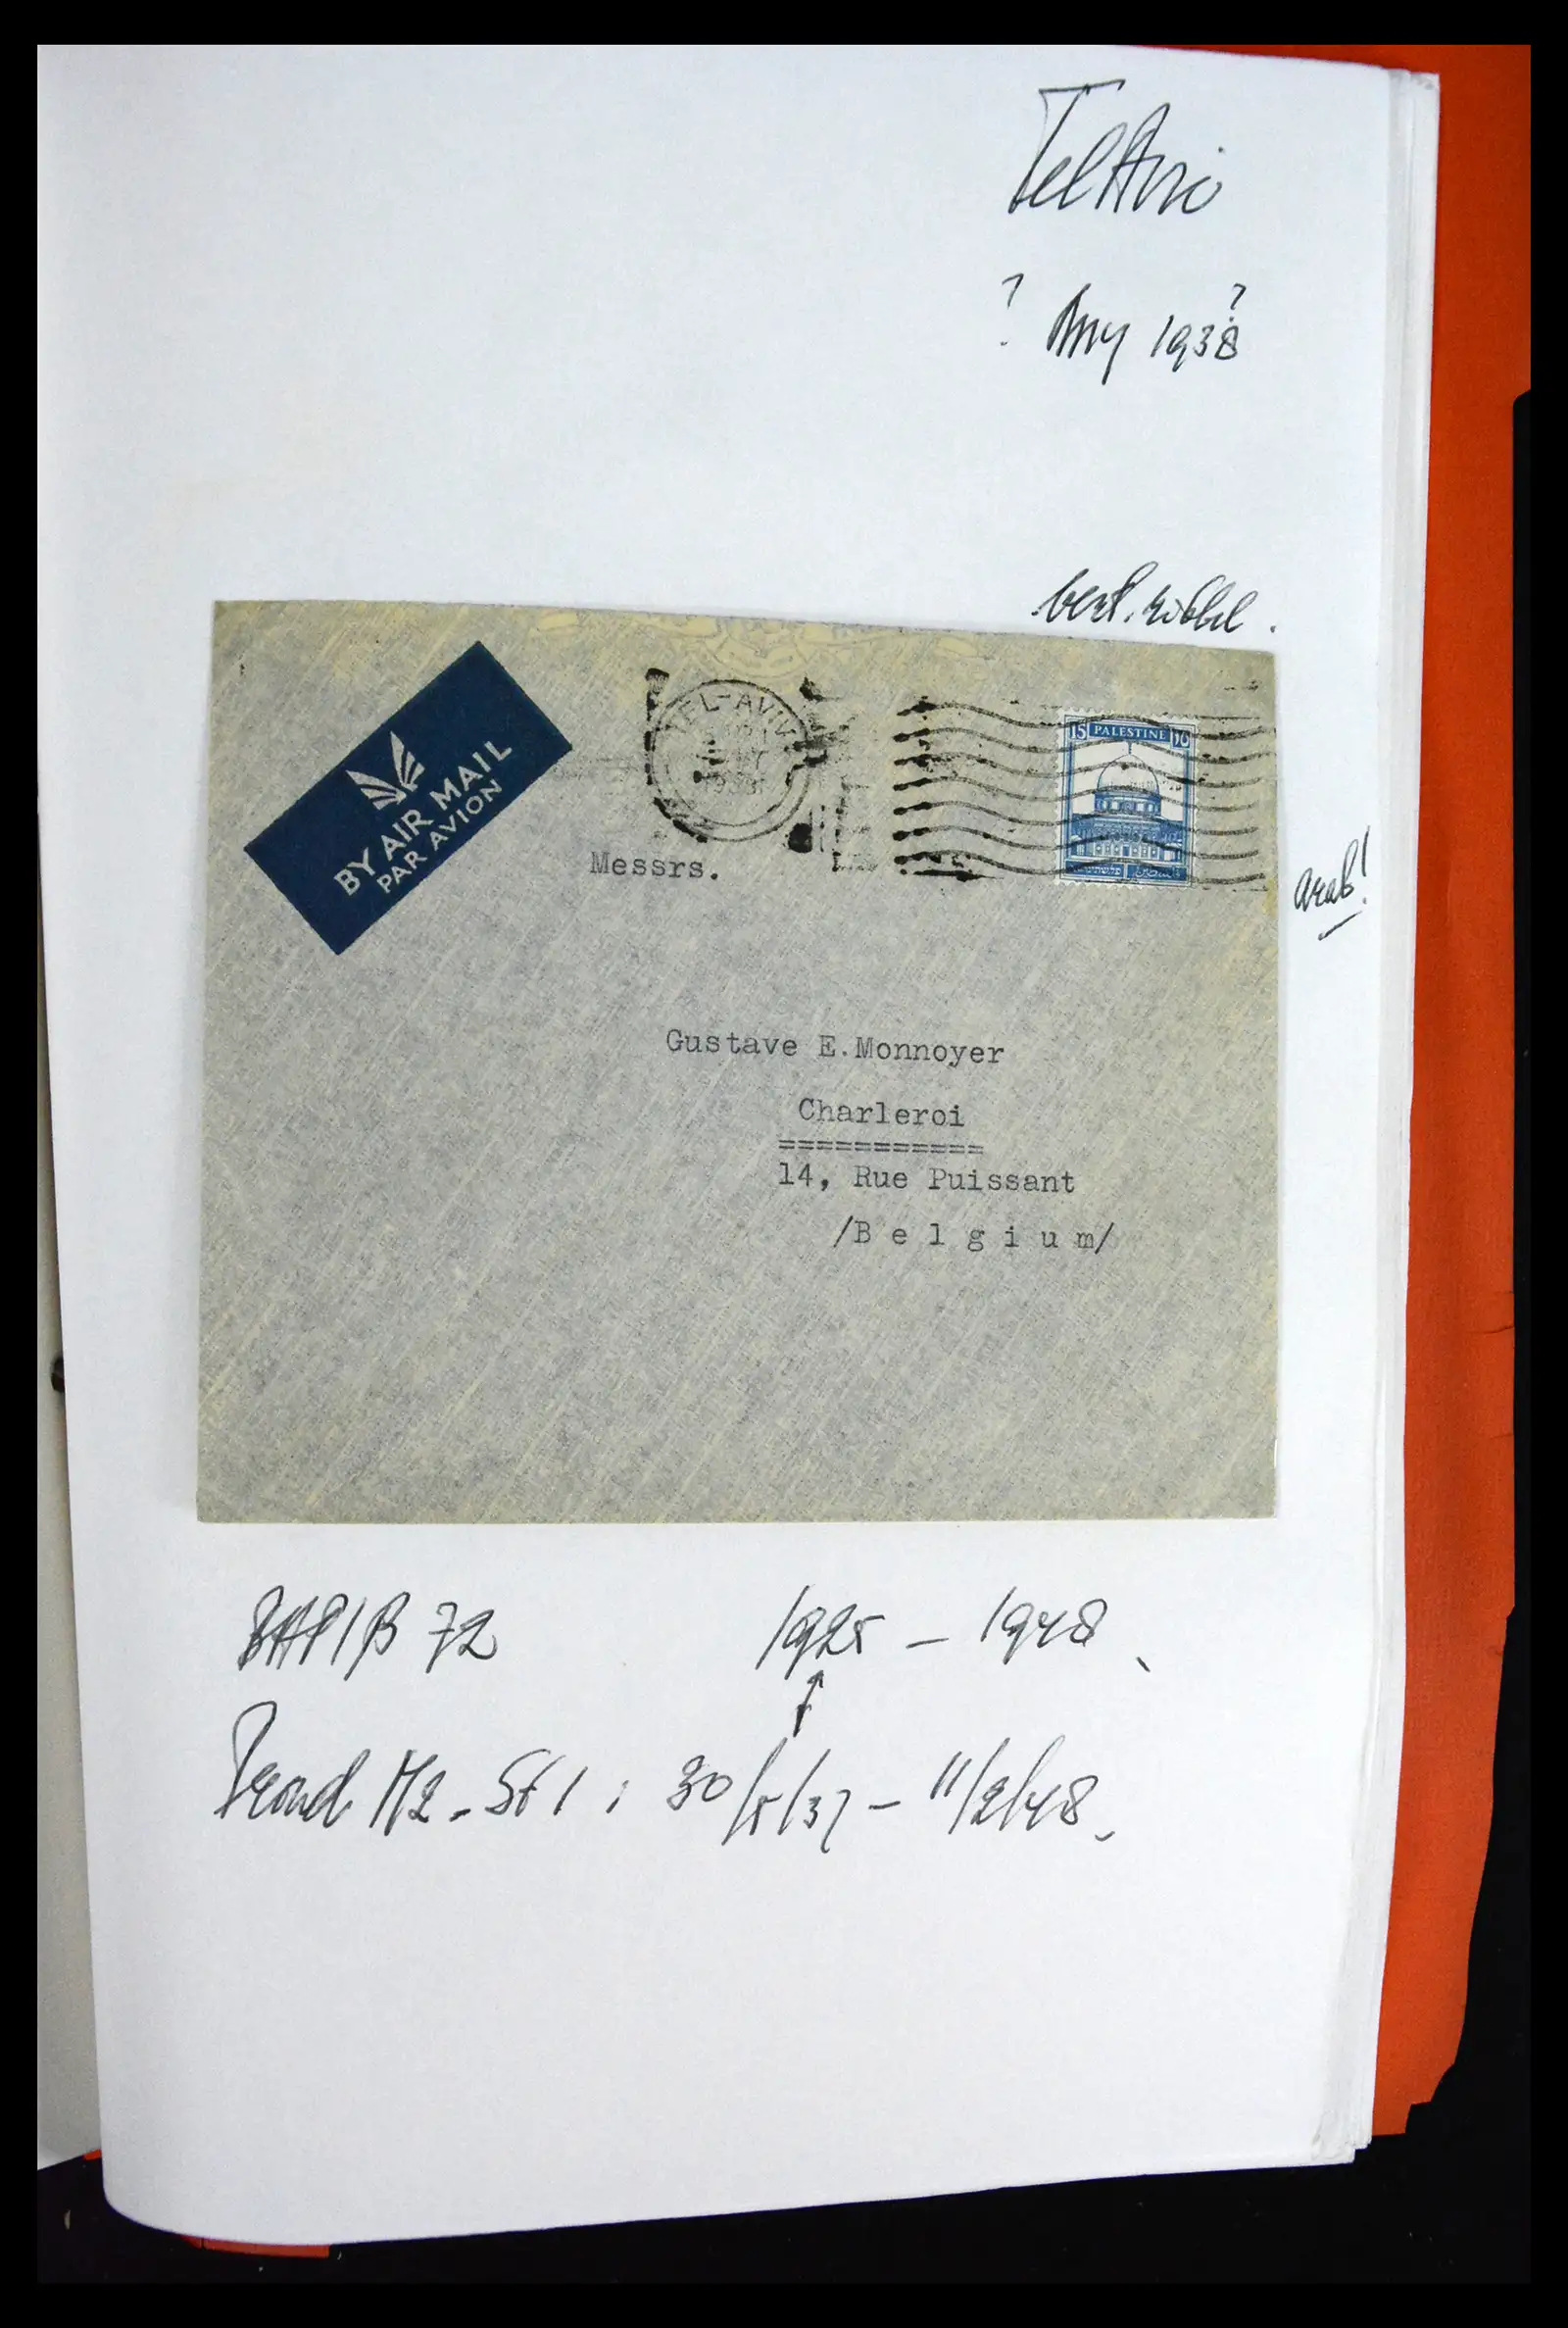 Tel Aviv
? Any 1938 ?
arab!
BY AIR MAIL
PAR AVION
TEL-AVIV
1938
15 PALESTINE 15
Messrs.
Gustave E.Monnoyer
Charleroi
===========
14, Rue Puissant
/B e l g i u m/
BAPIP B 72 1925 - 1948
M2 - St 1 : 30/5/37 - 11/2/48